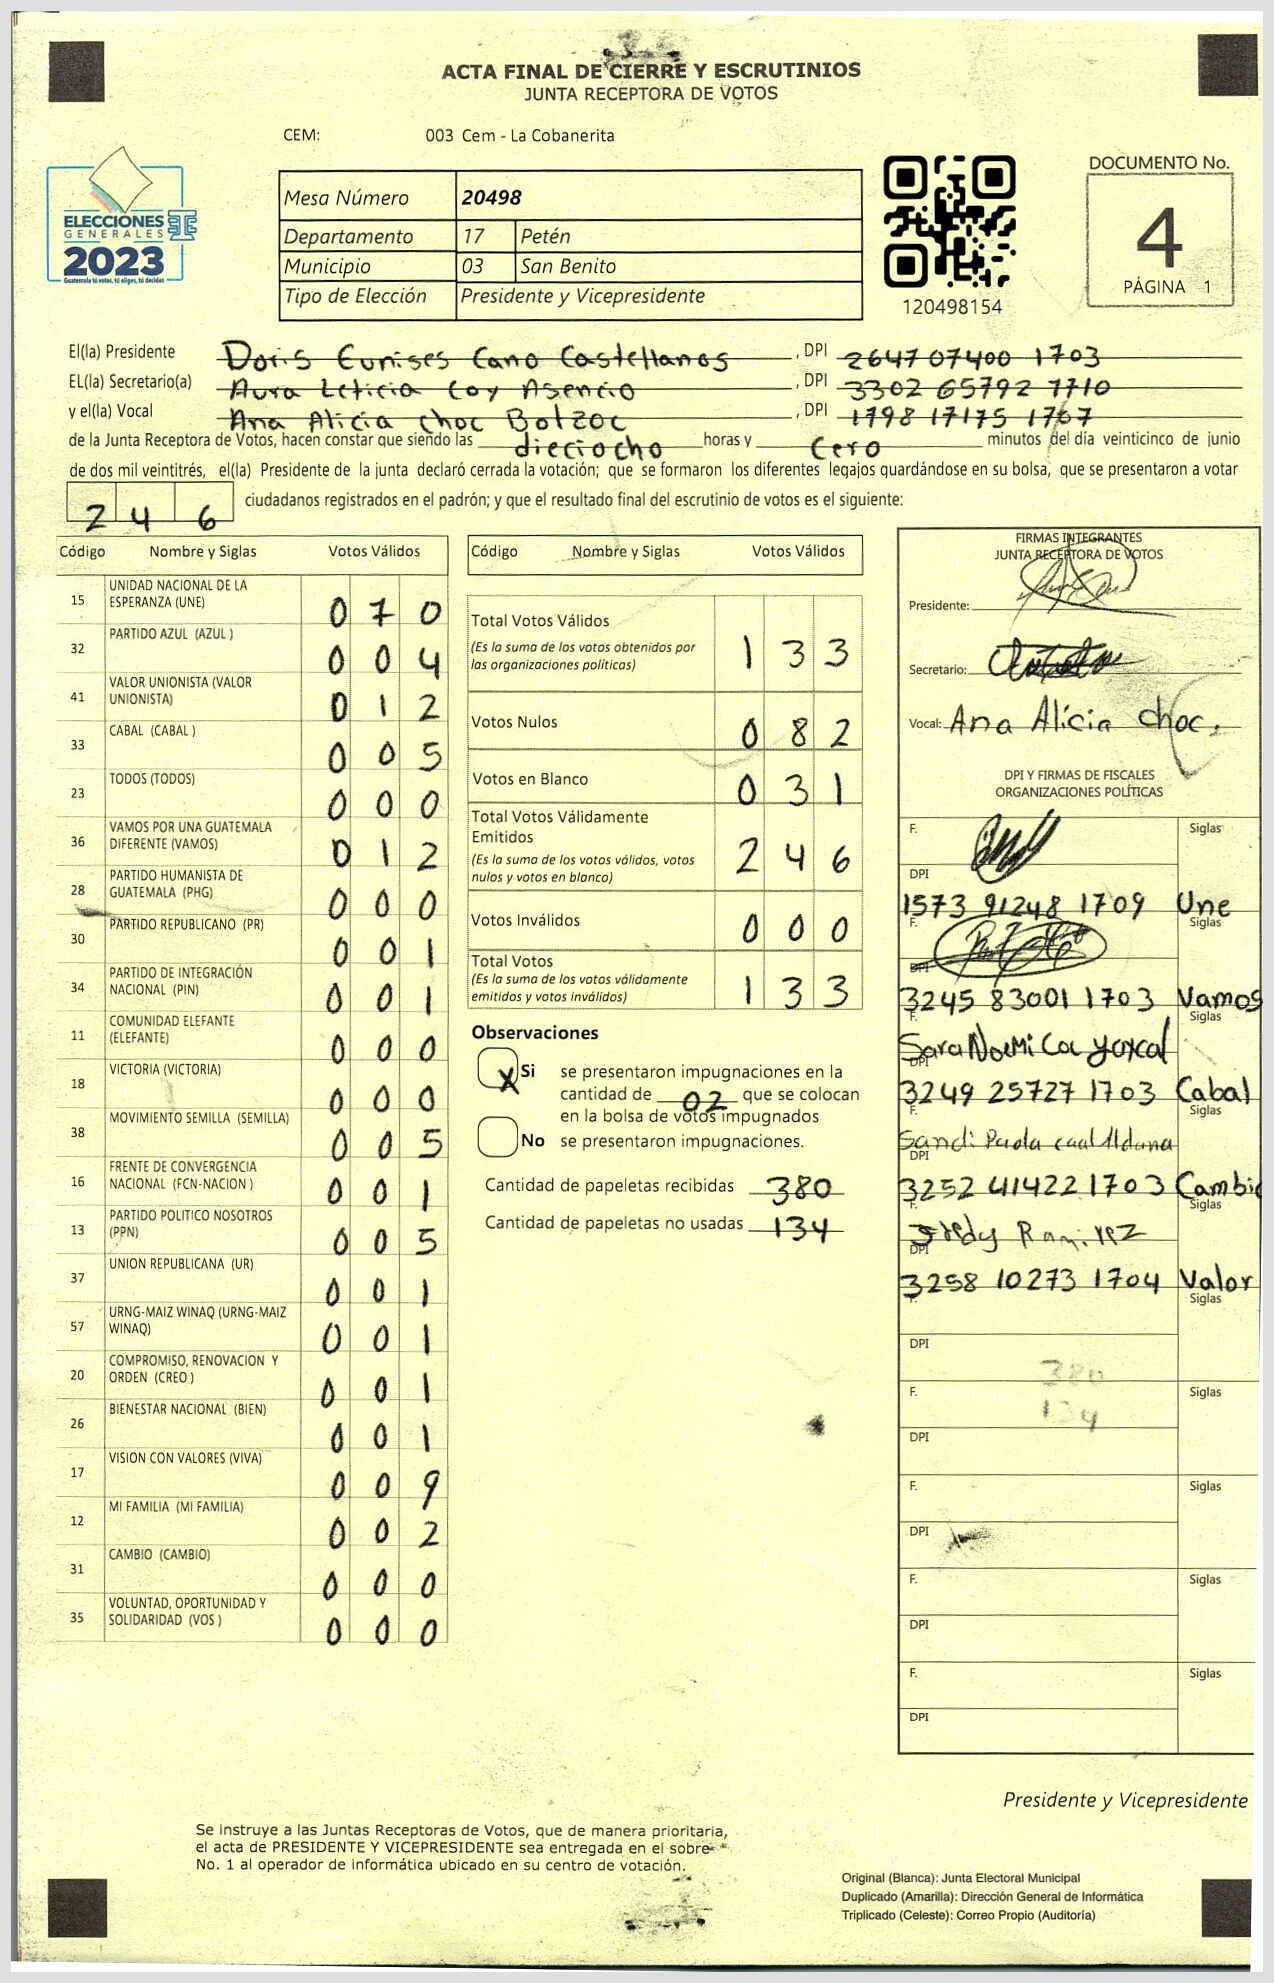 ACTA FINAL DE CIERRE Y ESCRUTINIOS
JUNTA RECEPTORA DE VOTOS
CEM: 003 Cem - La Cobanerita
ELECCIONES
GENERALES
2023
Guatemala tú votas, tú eliges, tú decides
Mesa Número 20498
Departamento 17 Petén
Municipio 03 San Benito
Tipo de Elección Presidente y Vicepresidente
120498154
DOCUMENTO No.
4
PÁGINA 1
El(la) Presidente Doris Eunises Cano Castellanos, DPI 2647 07400 1703
EL(la) Secretario(a) Aura Leticia Coy Asencio, DPI 3302 65792 1710
y el(la) Vocal Ana Alicia choc Botzoc, DPI 1798 17175 1707
de la Junta Receptora de Votos, hacen constar que siendo las dieciocho horas y Cero minutos del día veinticinco de junio
de dos mil veintitrés, el(la) Presidente de la junta declaró cerrada la votación; que se formaron los diferentes legajos guardándose en su bolsa, que se presentaron a votar
2 4 6 ciudadanos registrados en el padrón; y que el resultado final del escrutinio de votos es el siguiente:
Código Nombre y Siglas Votos Válidos
15 UNIDAD NACIONAL DE LA ESPERANZA (UNE) 0 7 0
32 PARTIDO AZUL (AZUL ) 0 0 4
41 VALOR UNIONISTA (VALOR UNIONISTA) 0 1 2
33 CABAL (CABAL ) 0 0 5
23 TODOS (TODOS) 0 0 0
36 VAMOS POR UNA GUATEMALA DIFERENTE (VAMOS) 0 1 2
28 PARTIDO HUMANISTA DE GUATEMALA (PHG) 0 0 0
30 PARTIDO REPUBLICANO (PR) 0 0 1
34 PARTIDO DE INTEGRACIÓN NACIONAL (PIN) 0 0 1
11 COMUNIDAD ELEFANTE (ELEFANTE) 0 0 0
18 VICTORIA (VICTORIA) 0 0 0
38 MOVIMIENTO SEMILLA (SEMILLA) 0 0 5
16 FRENTE DE CONVERGENCIA NACIONAL (FCN-NACION ) 0 0 1
13 PARTIDO POLITICO NOSOTROS (PPN) 0 0 5
37 UNION REPUBLICANA (UR) 0 0 1
57 URNG-MAIZ WINAQ (URNG-MAIZ WINAQ) 0 0 1
20 COMPROMISO, RENOVACION Y ORDEN (CREO ) 0 0 1
26 BIENESTAR NACIONAL (BIEN) 0 0 1
17 VISION CON VALORES (VIVA) 0 0 9
12 MI FAMILIA (MI FAMILIA) 0 0 2
31 CAMBIO (CAMBIO) 0 0 0
35 VOLUNTAD, OPORTUNIDAD Y SOLIDARIDAD (VOS ) 0 0 0
Código Nombre y Siglas Votos Válidos
Total Votos Válidos 1 3 3
(Es la suma de los votos obtenidos por
las organizaciones políticas)
Votos Nulos 0 8 2
Votos en Blanco 0 3 1
Total Votos Válidamente
Emitidos 2 4 6
(Es la suma de los votos válidos, votos
nulos y votos en blanco)
Votos Inválidos 0 0 0
Total Votos
(Es la suma de los votos válidamente
emitidos y votos inválidos) 1 3 3
Observaciones
X Si se presentaron impugnaciones en la
cantidad de 02 que se colocan
en la bolsa de votos impugnados
No se presentaron impugnaciones.
Cantidad de papeletas recibidas 380
Cantidad de papeletas no usadas 134
FIRMAS INTEGRANTES
JUNTA RECEPTORA DE VOTOS
Presidente:
Secretario:
Vocal: Ana Alicia choc.
DPI Y FIRMAS DE FISCALES
ORGANIZACIONES POLÍTICAS
F. Siglas
DPI
1573 91248 1709 Une
F. Siglas
DPI
3245 83001 1703 Vamos
F. Siglas
Sara Noemi Coc yaxcal
DPI
3249 25727 1703 Cabal
F. Siglas
Sandi Paola caal Aldana
DPI
3252 41422 1703 Cambio
F. Siglas
Fredy Ramirez
DPI
3258 10273 1704 Valor
F. Siglas
DPI
380
F. Siglas
134
DPI
F. Siglas
DPI
F. Siglas
DPI
F. Siglas
DPI
Presidente y Vicepresidente
Se instruye a las Juntas Receptoras de Votos, que de manera prioritaria,
el acta de PRESIDENTE Y VICEPRESIDENTE sea entregada en el sobre
No. 1 al operador de informática ubicado en su centro de votación.
Original (Blanca): Junta Electoral Municipal
Duplicado (Amarilla): Dirección General de Informática
Triplicado (Celeste): Correo Propio (Auditoría)